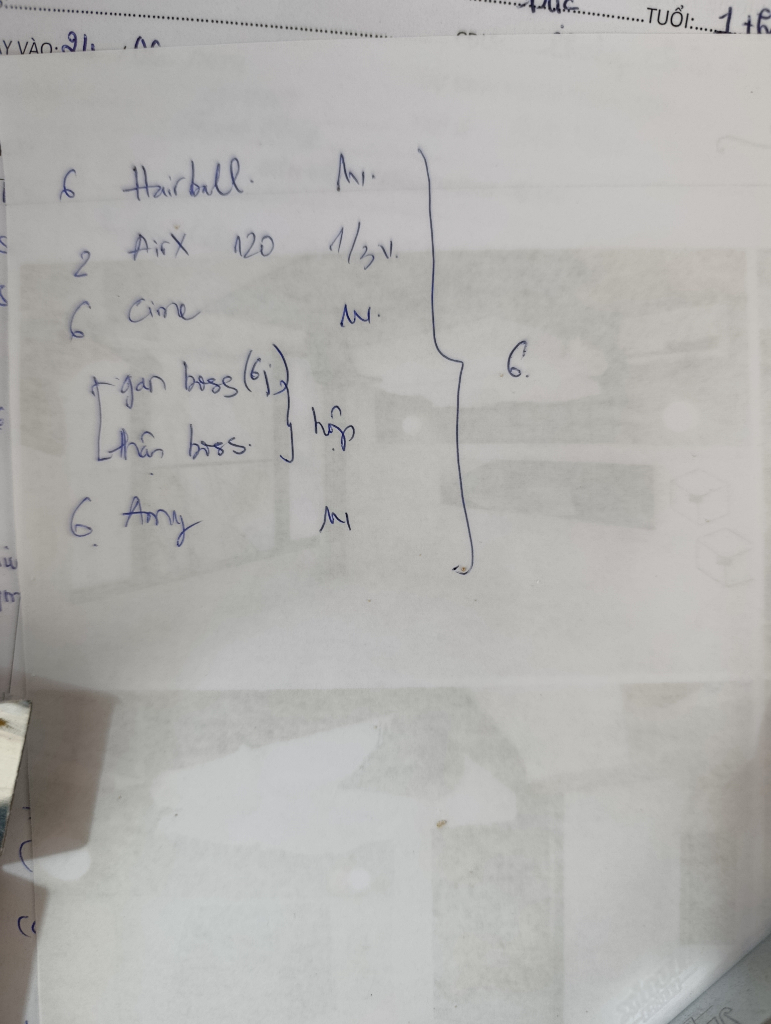 TUỔI: 1
6 Hairball. M1.
2 AirX 120 1/3 v.
6 Cime M1.
gan boss (6j)
thận boss. hộp
6 Amy M1
6.